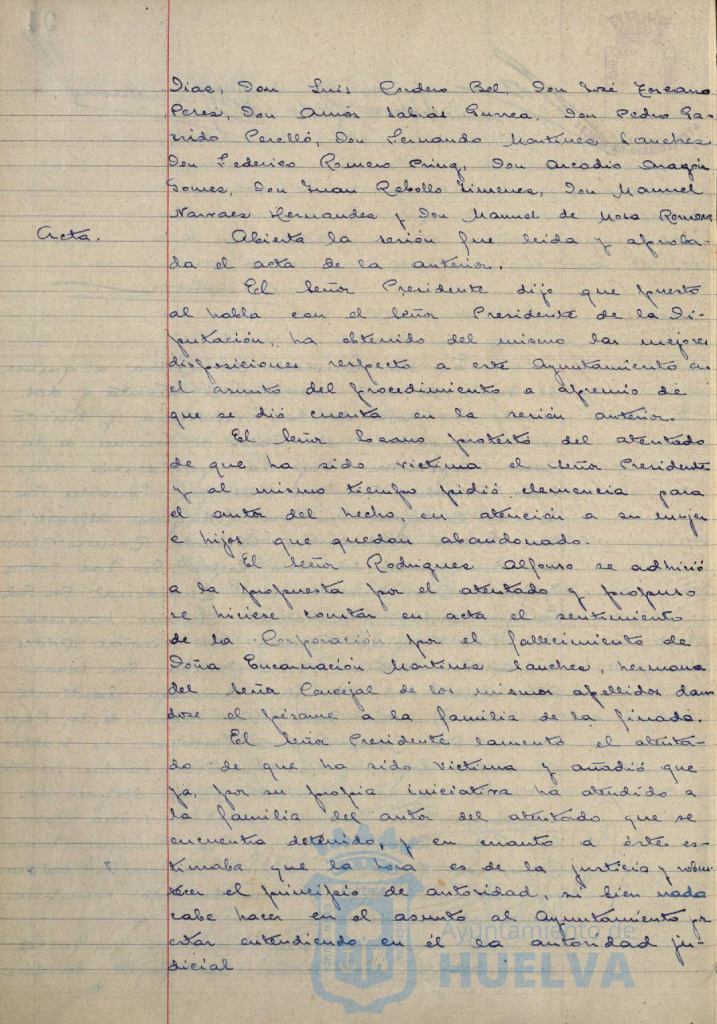 Diaz, Don Luis Cordero Bel, Don José Toscano
Perez, Don Amós Sabrás Gurrea, Don Pedro Ga-
rrido Perelló, Don Fernando Martinez Sanchez
Don Federico Romero Pring, Don Arcadio Aragón
Gomez, Don Juan Rebollo Jimenez, Don Manuel
Narvaez Hernandez y Don Manuel de Mora Romero
Acta.
Abierta la sesión fue leida y aproba-
da el acta de la anterior.
El Señor Presidente dijo que puesto
al habla con el Señor Presidente de la Di-
putación, ha obtenido del mismo las mejores
disposiciones respecto a este Ayuntamiento en
el asunto del procedimiento a apremio de
que se dió cuenta en la sesión anterior.
El Señor Lozano protestó del atentado
de que ha sido victima el Señor Presidente
y al mismo tiempo pidió clemencia para
el autor del hecho, en atención a su mujer
e hijos que quedan abandonado.
El Señor Rodriguez Alfonso se adhirió
a la propuesta por el atentado y propuso
se hiciese constar en acta el sentimiento
de la Corporación por el fallecimiento de
Doña Encarnación Martinez Sanchez, hermana
del Señor Concejal de los mismos apellidos dan
dose el pésame a la familia de la finada.
El Señor Presidente lamentó el atenta-
do de que ha sido victima y añadió que
ya, por su propia iniciativa ha atendido a
la familia del autor del atentado que se
encuentra detenido, y en cuanto a éste es-
timaba que la hora es de la justicia y robus-
tecer el principio de autoridad, si bien nada
cabe hacer en el asunto al Ayuntamiento por
estar entendiendo en él la autoridad ju-
dicial
Ayuntamiento de
HUELVA